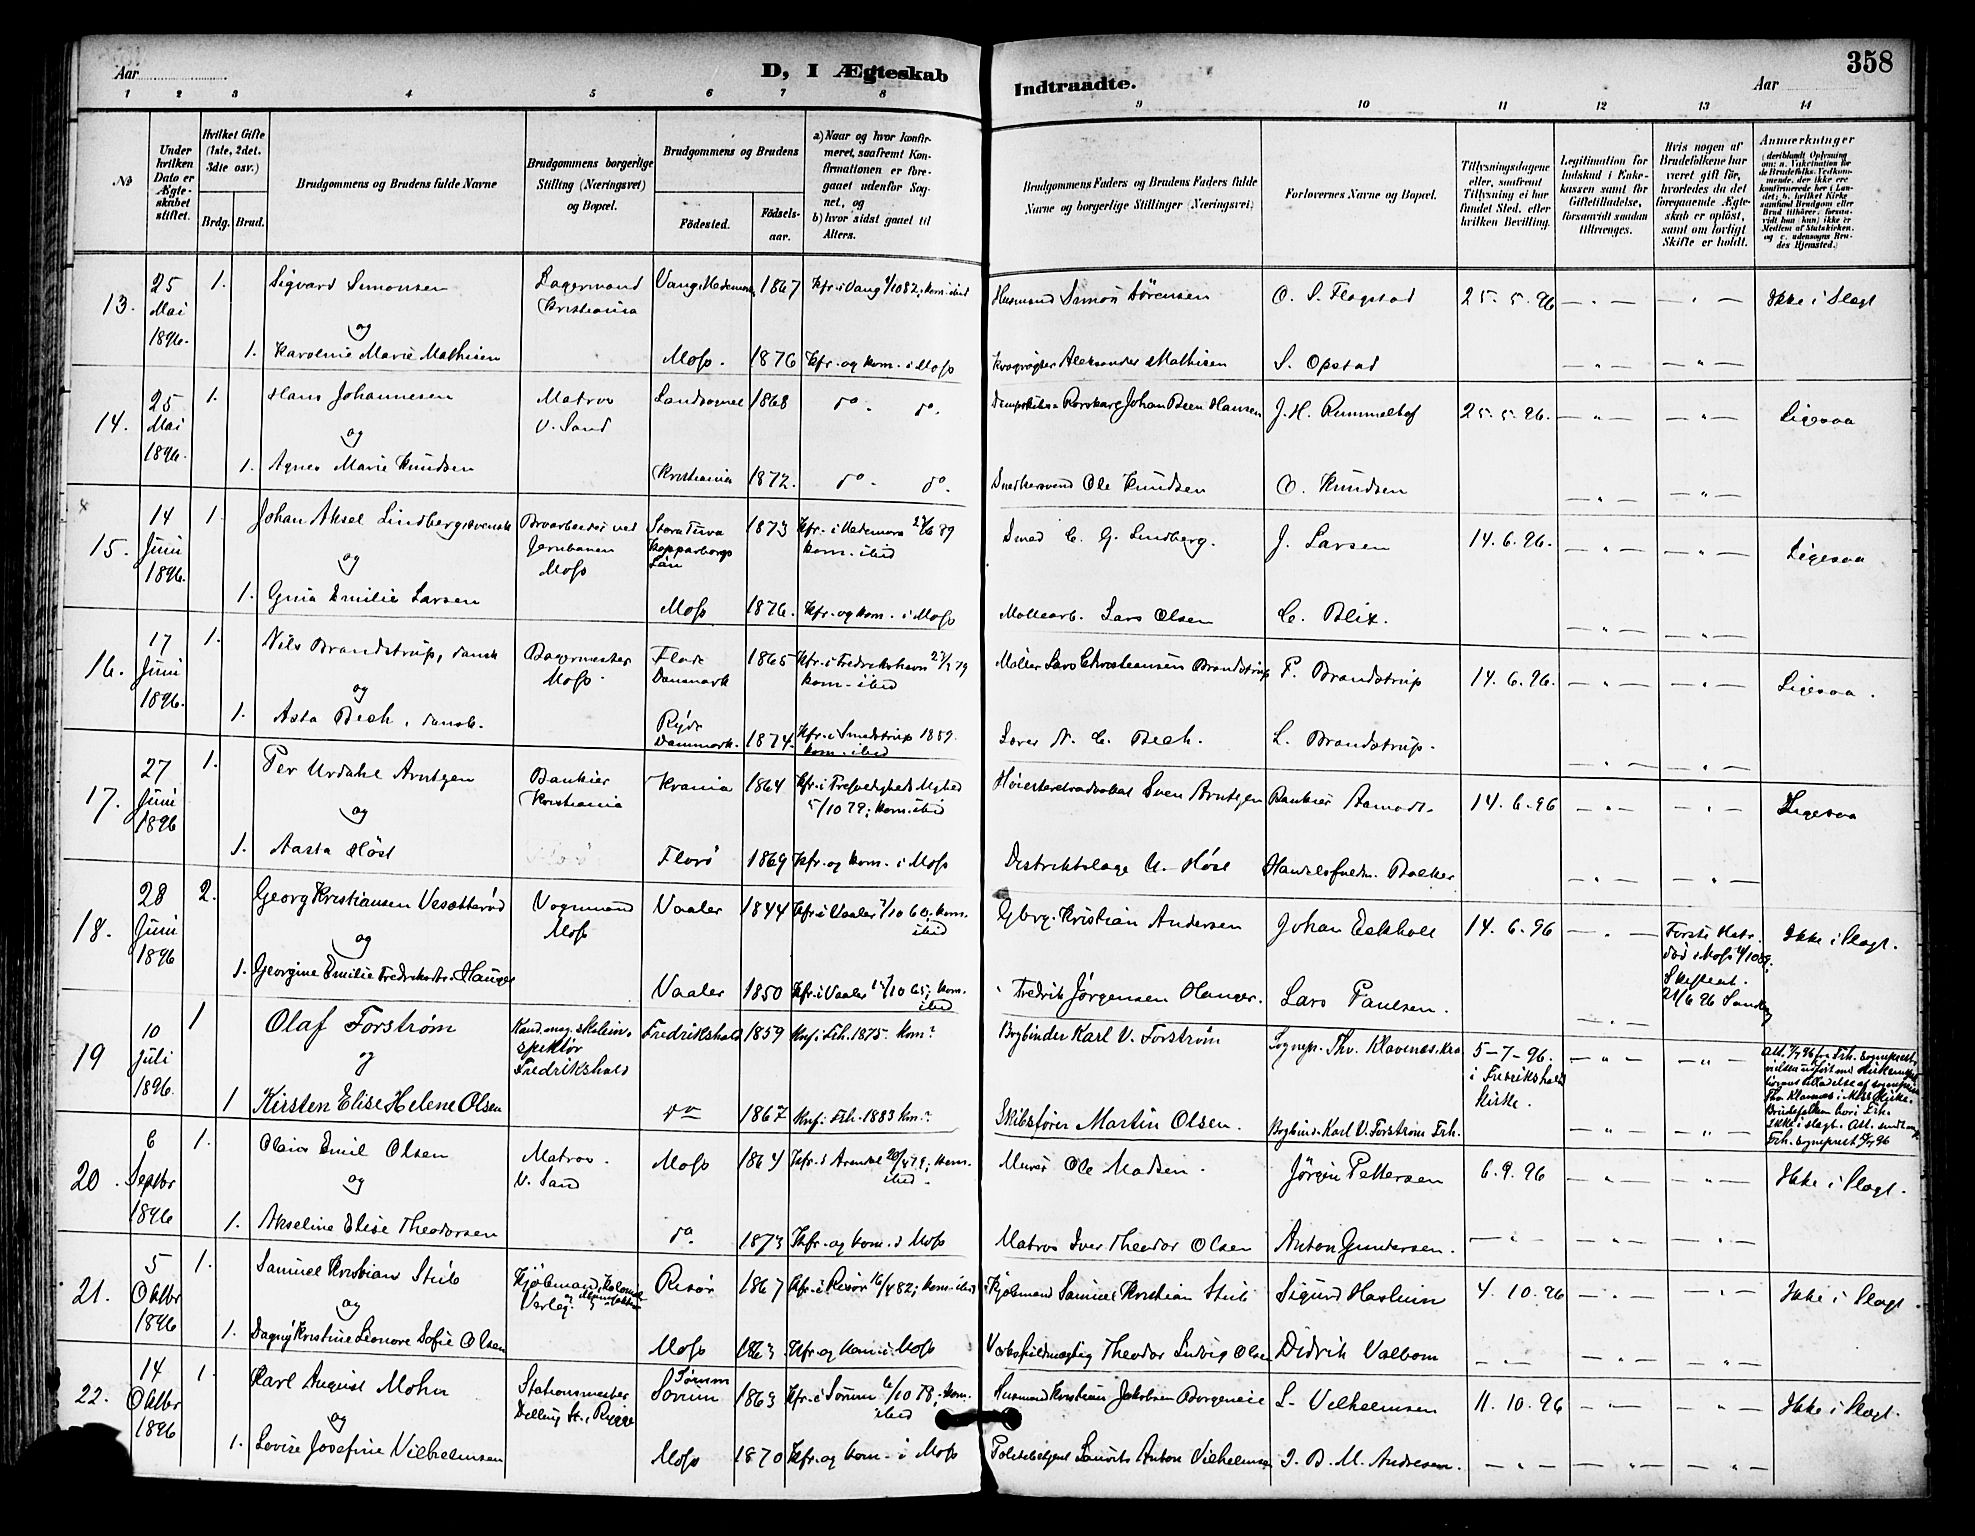 358
Aar
D, I Ægteskab
Indtraadte.
Aar
1 2 3 4 5 6 7 8 9 10 11 12 13 14
No
Under hvilken Dato er Ægteskabet stiftet.
Hvilket Gifte (1ste, 2det, 3dte osv.)
Brdg. Brud.
Brudgommens og Brudens fulde Navne
Brudgommens borgerlige Stilling (Næringsvei) og Bopæl.
Brudgommens og Brudens
Fødested. Fødselsaar.
a) Naar og hvor konfirmeret, saafremt Konfirmationen er foregaaet udenfor Sognet, og
b) hvor sidst gaaet til Alters.
Brudgommens Faders og Brudens Faders fulde Navne og borgerlige Stillinger (Næringsvei)
Forlovernes Navne og Bopæl.
Tillysningsdagene eller, saafremt Tillysning ei har fundet Sted, efter hvilken Bevilling.
Legitimation for Indskud i Enkekassen samt for Giftetilladelse, forsaavidt saadan tiltrænges.
Hvis nogen af Brudefolkene har været gift før, hvorledes da det foregaaende Ægteskab er opløst, samt om lovligt Skifte er holdt.
Anmærkninger
13. 25 Mai 1896. 1. Sigvard Simonsen Lagermand Kristiania Vang, Hedemark, 1867 Kfr. i Vang 1/10 82; kom. ibid Husmand Simon Sörensen O. S. Flagstad 25.5.96 Ikke i Slægt
og
1. Karoline Marie Mathisen Moss. 1876 Kfr. og kom. i Moss Aleksander Mathisen S. Opstad
14. 25 Mai 1896. 1. Hans Johannesen Matros v. Sand Landsognet 1868 do. do. Johan Been Hansen J. H. Rummelhof 25.5.96. Ligesaa
og
1. Agnes Marie Knudsen Kristiania 1872. do. do. Snedkersvend Ole Knudsen O. Knudsen
15. 14 Juni 1896. 1. Johan Aksel Lindberg, svensk Broarbeider ved Jernbanen Moss Stora Tuna Kopparbergs Län 1873 Kfr. i Hedemora 23/6 89 kom. ibid Smed C. G. Lindberg. J. Larsen 14.6.96. Ligesaa
og
1. Gina Emilie Larsen Moss 1876. Kfr. og kom. i Moss Møllearb. Lars Olsen C. Blix.
16. 17 Juni 1896. 1. Nils Brandstrup, dansk Bagermester Moss. Flade Danmark 1865 Kfr. i Fredrikshavn kom. ibid Møller Lars Christiansen Brandstrup P. Brandstrup 14.6.96. Ligesaa.
og
1. Asta Bech, dansk. Ryde Danmark. 1874. Kfr. i Smedstrup 1889. kom. ibid N. C. Bech. L. Brandstrup.
17. 27 Juni 1896 1. Per Urdahl Arntzen Bankier Kristiania Krania 1864 Kfr. i Trefoldigheds Mghed 5/10 79; kom. ibid Høiesteretsadvokat Sven Arntzen Bankier Aamodt. 14.6.96 Ligesaa
og
1. Aasta Høst Florø 1869 Kfr. og kom. i Moss Distriktslæge U. Høst Handelsfuldm. Backer
18. 28 Juni 1896 2. Georg Kristiansen Vesætterød Vognmand Moss Vaaler 1844 Kfr. i Vaaler 7/10 60; kom. ibid Gbrg. Kristian Andersen Johan Eekholt 14.6.96 Første Hstr. død i Moss 4/10 89; Skifteat. 21/6 96 Ikke i Slægt.
og
1. Georgine Emilie Fredriksdtr. Hauger Vaaler 1850 Kfr. i Vaaler 1/10 65; kom. ibid Fredrik Jörgensen Hauger. Lars Paulsen.
19 10 Juli 1896. 1 Olaf Forstrøm Kand. mag. skoleinspektør Fredrikshald Fredrikshald 1859 Knf. i Frh. 1875. kom? Bogbinder Karl V. Forstrøm Sognep. Thv. Klavenes. Kra 5-7-96. i Fredrikshalds Kirke.
og
1 Kirsten Elise Helene Olsen do 1867 Knf. i Frh. 1883 kom? Skibsfører Martin Olsen. Bogbind. Karl V. Forstrøm Frh. Brudefolkene bor i Frh. Ikke i slægt. Frh. sognepræst
20. 6 Septbr 1896 1. Olais Emil Olsen Matros. v. Sand Moss 1864 Kfr. i Arendal 20/4 79; kom. ibid. Murer Ole Madsen. Jørgen Pettersen 6.9.96 Ikke i Slægt.
og
1. Akseline Elise Theodorsen do. 1873 Kfr. og kom. i Moss Matros Iver Theodor Olsen Anton Gundersen.
21. 5 Oktbr 1896 1. Samuel Kristian Stub Kjøbmand Risør 1867 Kfr. i Risør 16/4 82; kom. ibid Kjøbmand Samuel Kristian Stub Sigurd Haslum 4.10.96 Ikke i Slægt.
og
1. Dagny Kristine Leonore Sofie Olsen Moss 1863 Kfr. og kom. i Moss Theodor Ludvig Olsen Didrik Valbom
22. 14 Oktbr 1896 1. Karl August Mohn Stationsmester Dilling St., Rygge Sørum Sørum 1863 Kfr. i Sørum 6/10 78; kom. ibid Husmand Kristian Jakobsen Borgeneie L. Vilhelmsen 11.10.96 Ikke i Slægt.
og
1. Lovise Josefine Vilhelmsen Moss 1870 Kfr. og kom. i Moss Politibetjent Laurits Anton Vilhelmsen J. B. M. Andresen.